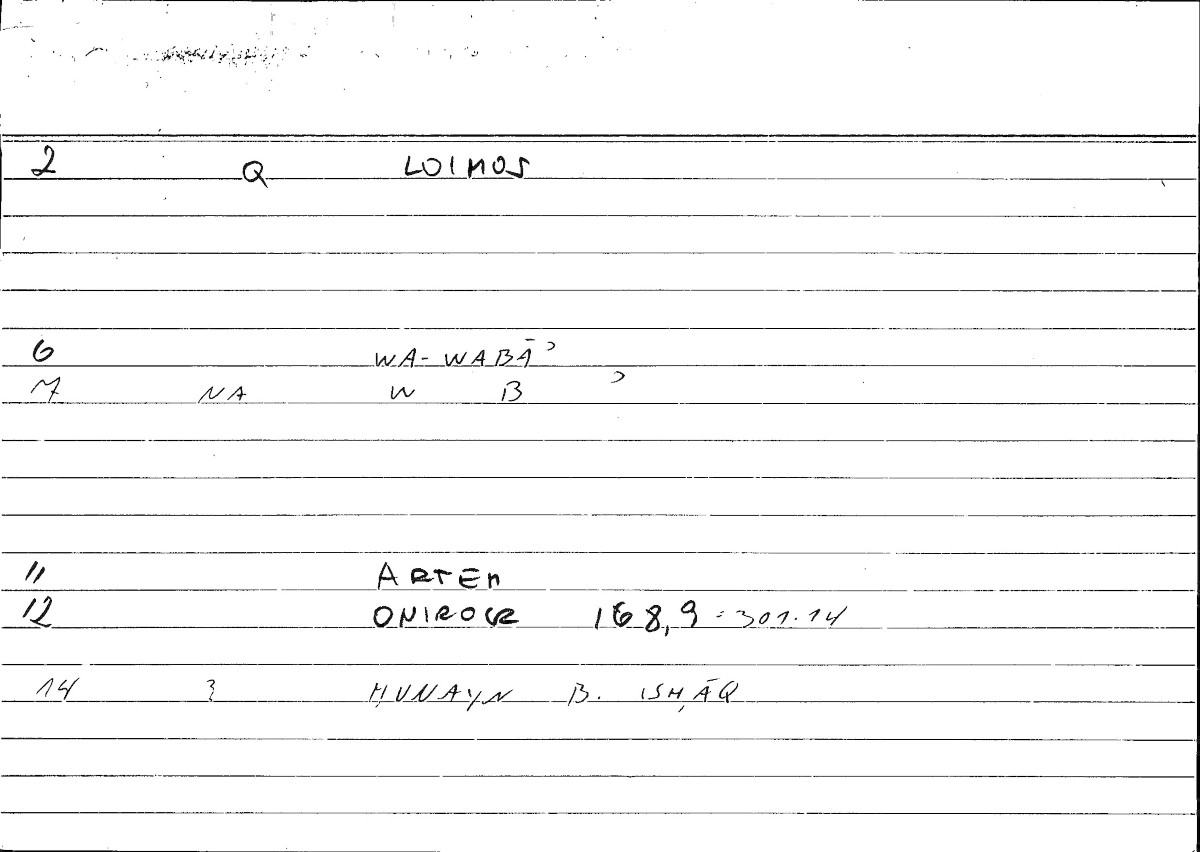 2 Q LOIMOS
6 WA-WABĀʾ
7 NA W B ʾ
11 ARTEM
12 ONIROCR 168,9 = 301.14
14 3 ḤUNAYN B. ISḤĀQ